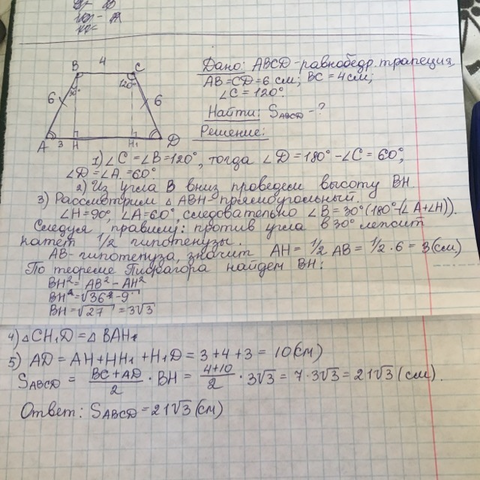 B 4 C
6 30° 120° 6
A 3 H H₁ D
Дано: ABCD-равнобедр. трапеция
AB=CD=6 см; BC=4см;
∠C=120°.
Найти: SABCD-?
Решение:
1) ∠C=∠B=120°, тогда ∠D=180°-∠C=60°,
∠D=∠A=60°
2) Из угла B вниз проведем высоту BH
3) Рассмотрим △ABH-прямоугольный.
∠H=90°, ∠A=60°, следовательно ∠B=30°(180°-(∠A+∠H)).
Следуя правилу: против угла в 30° лежит
катет 1/2 гипотенузы.
AB-гипотенуза, значит AH=1/2 AB=1/2·6=3(см)
По теореме Пифагора найдем BH:
BH²=AB²-AH²
BH=√36-9
BH=√27=3√3
4) △CH₁D=△BAH₁
5) AD=AH+HH₁+H₁D=3+4+3=10(см)
SABCD = BC+AD/2 · BH = 4+10/2 · 3√3=7·3√3=21√3(см).
Ответ: SABCD=21√3(см)